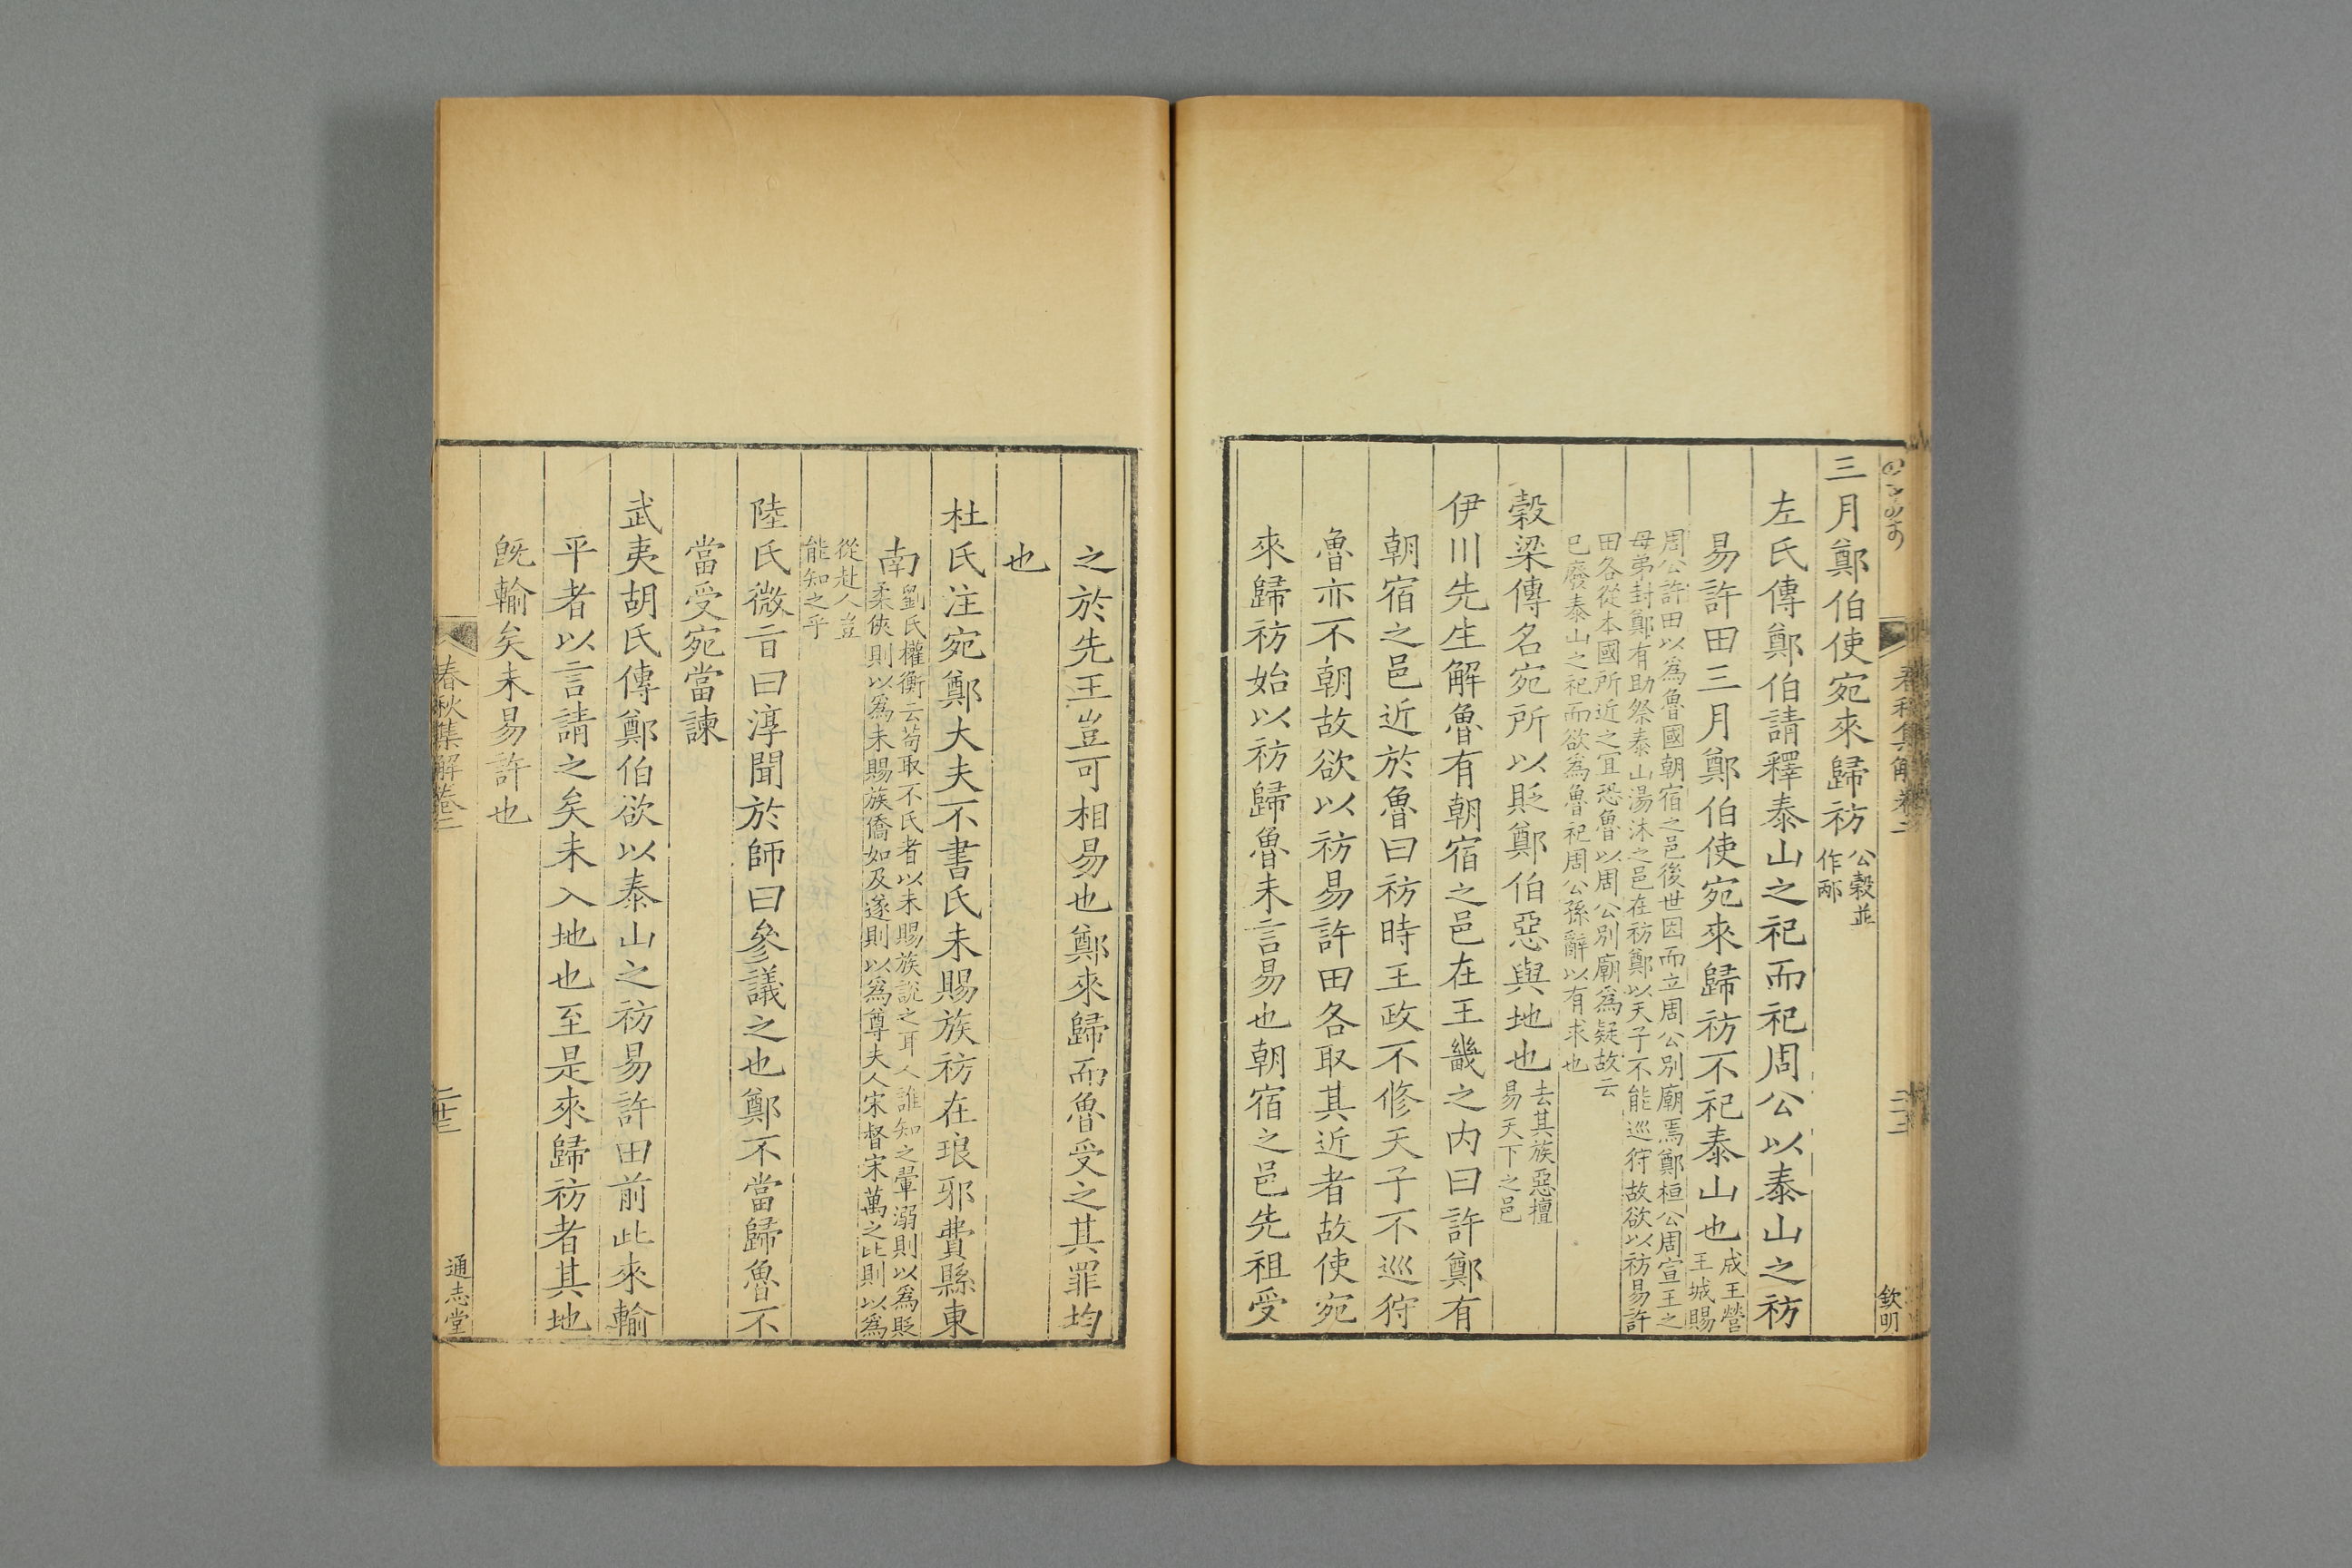 三月鄭伯使宛來歸祊公穀並作邴
左氏傳鄭伯請釋泰山之祀而祀周公以泰山之祊
易許田三月鄭伯使宛來歸祊不祀泰山也成王營王城賜
周公許田以爲魯國朝宿之邑後世因而立周公別廟焉鄭桓公周宣王之
母弟封鄭有助祭泰山湯沐之邑在祊鄭以天子不能巡狩故欲以祊易許
田各從本國所近之宜恐魯以周公別廟爲疑故云
已廢泰山之祀而欲爲魯祀周公孫辭以有求也
穀梁傳名宛所以貶鄭伯惡與地也去其族惡擅易天下之邑
伊川先生解魯有朝宿之邑在王畿之内曰許鄭有
朝宿之邑近於魯曰祊時王政不修天子不巡狩
魯亦不朝故欲以祊易許田各取其近者故使宛
來歸祊始以祊歸魯未言易也朝宿之邑先祖受
欽明
之於先王豈可相易也鄭來歸而魯受之其罪均
也
杜氏注宛鄭大夫不書氏未賜族祊在琅邪費縣東
南劉氏權衡云苟取不氏者以未賜族說之耳人誰知之翬溺則以爲貶
柔俠則以爲未賜族僑如及遂則以爲尊夫人宋督宋萬之比則以爲
從赴人豈
能知之乎
陸氏微旨曰淳聞於師曰參議之也鄭不當歸魯不
當受宛當諫
武夷胡氏傳鄭伯欲以泰山之祊易許田前此來輸
平者以言請之矣未入地也至是來歸祊者其地
旣輸矣未易許也
春秋集解卷二
二十三
通志堂